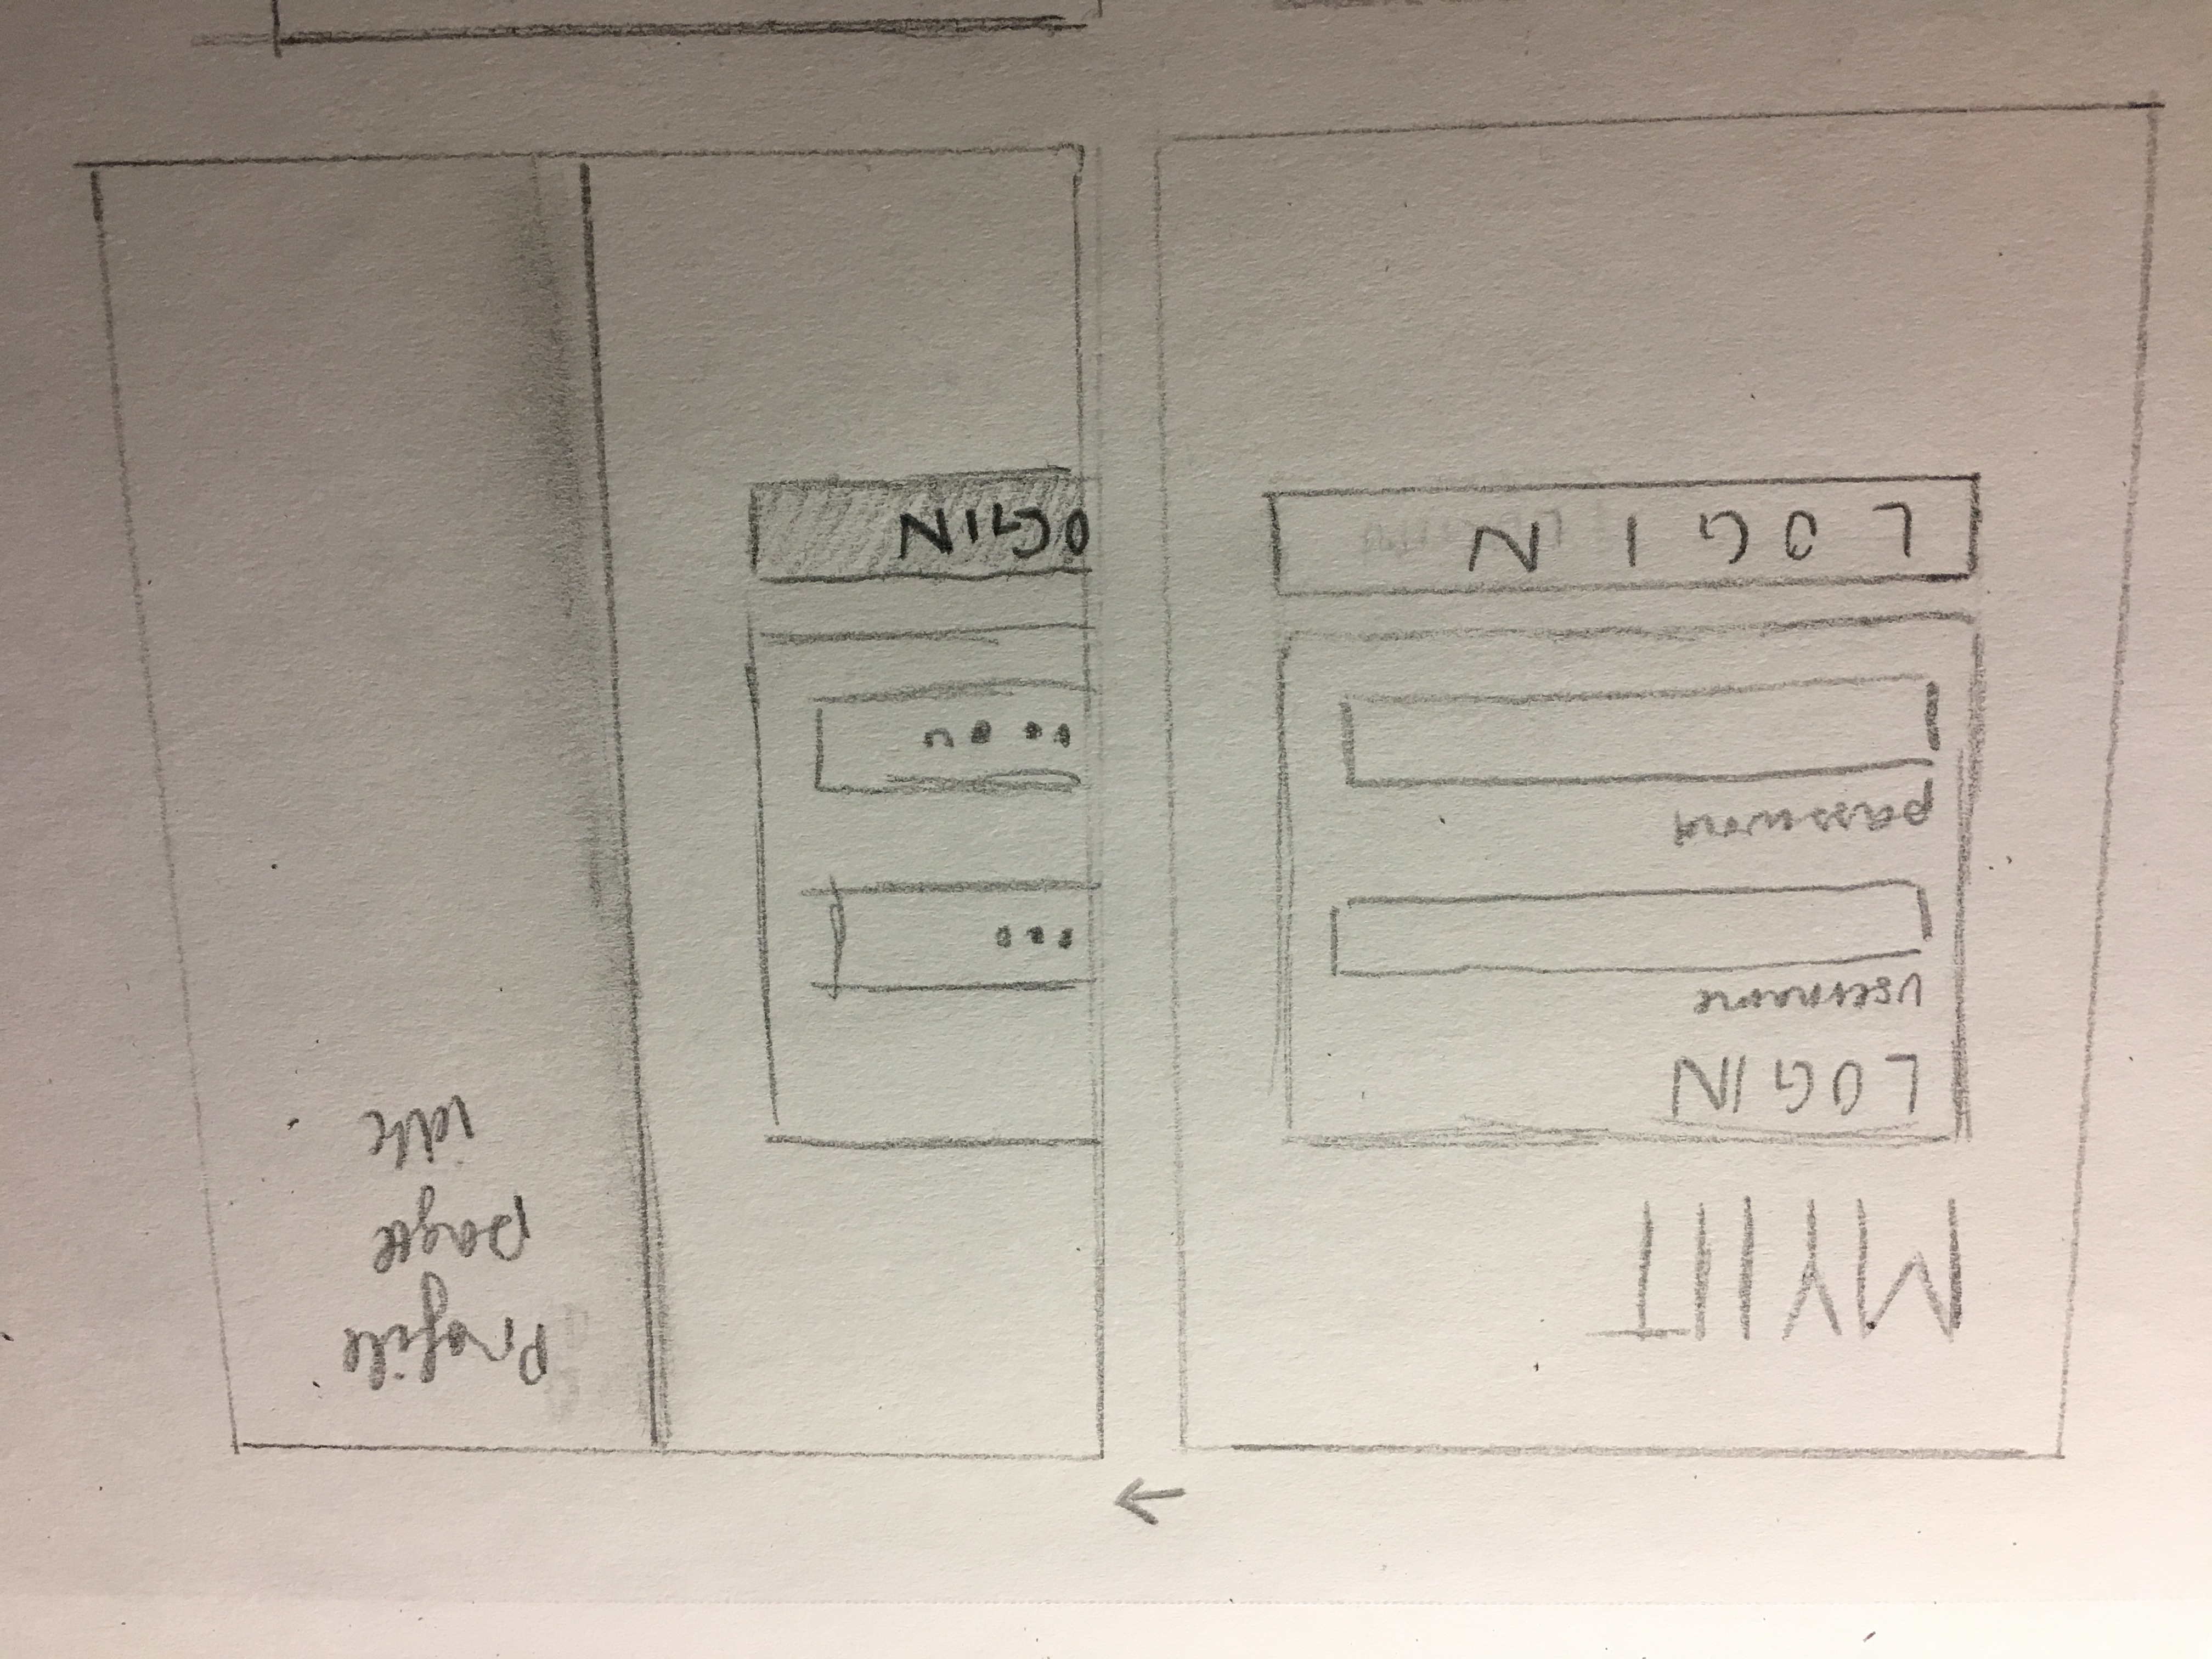 MYIIT
LOGIN
username
password
LOGIN
OGIN
Profile
page